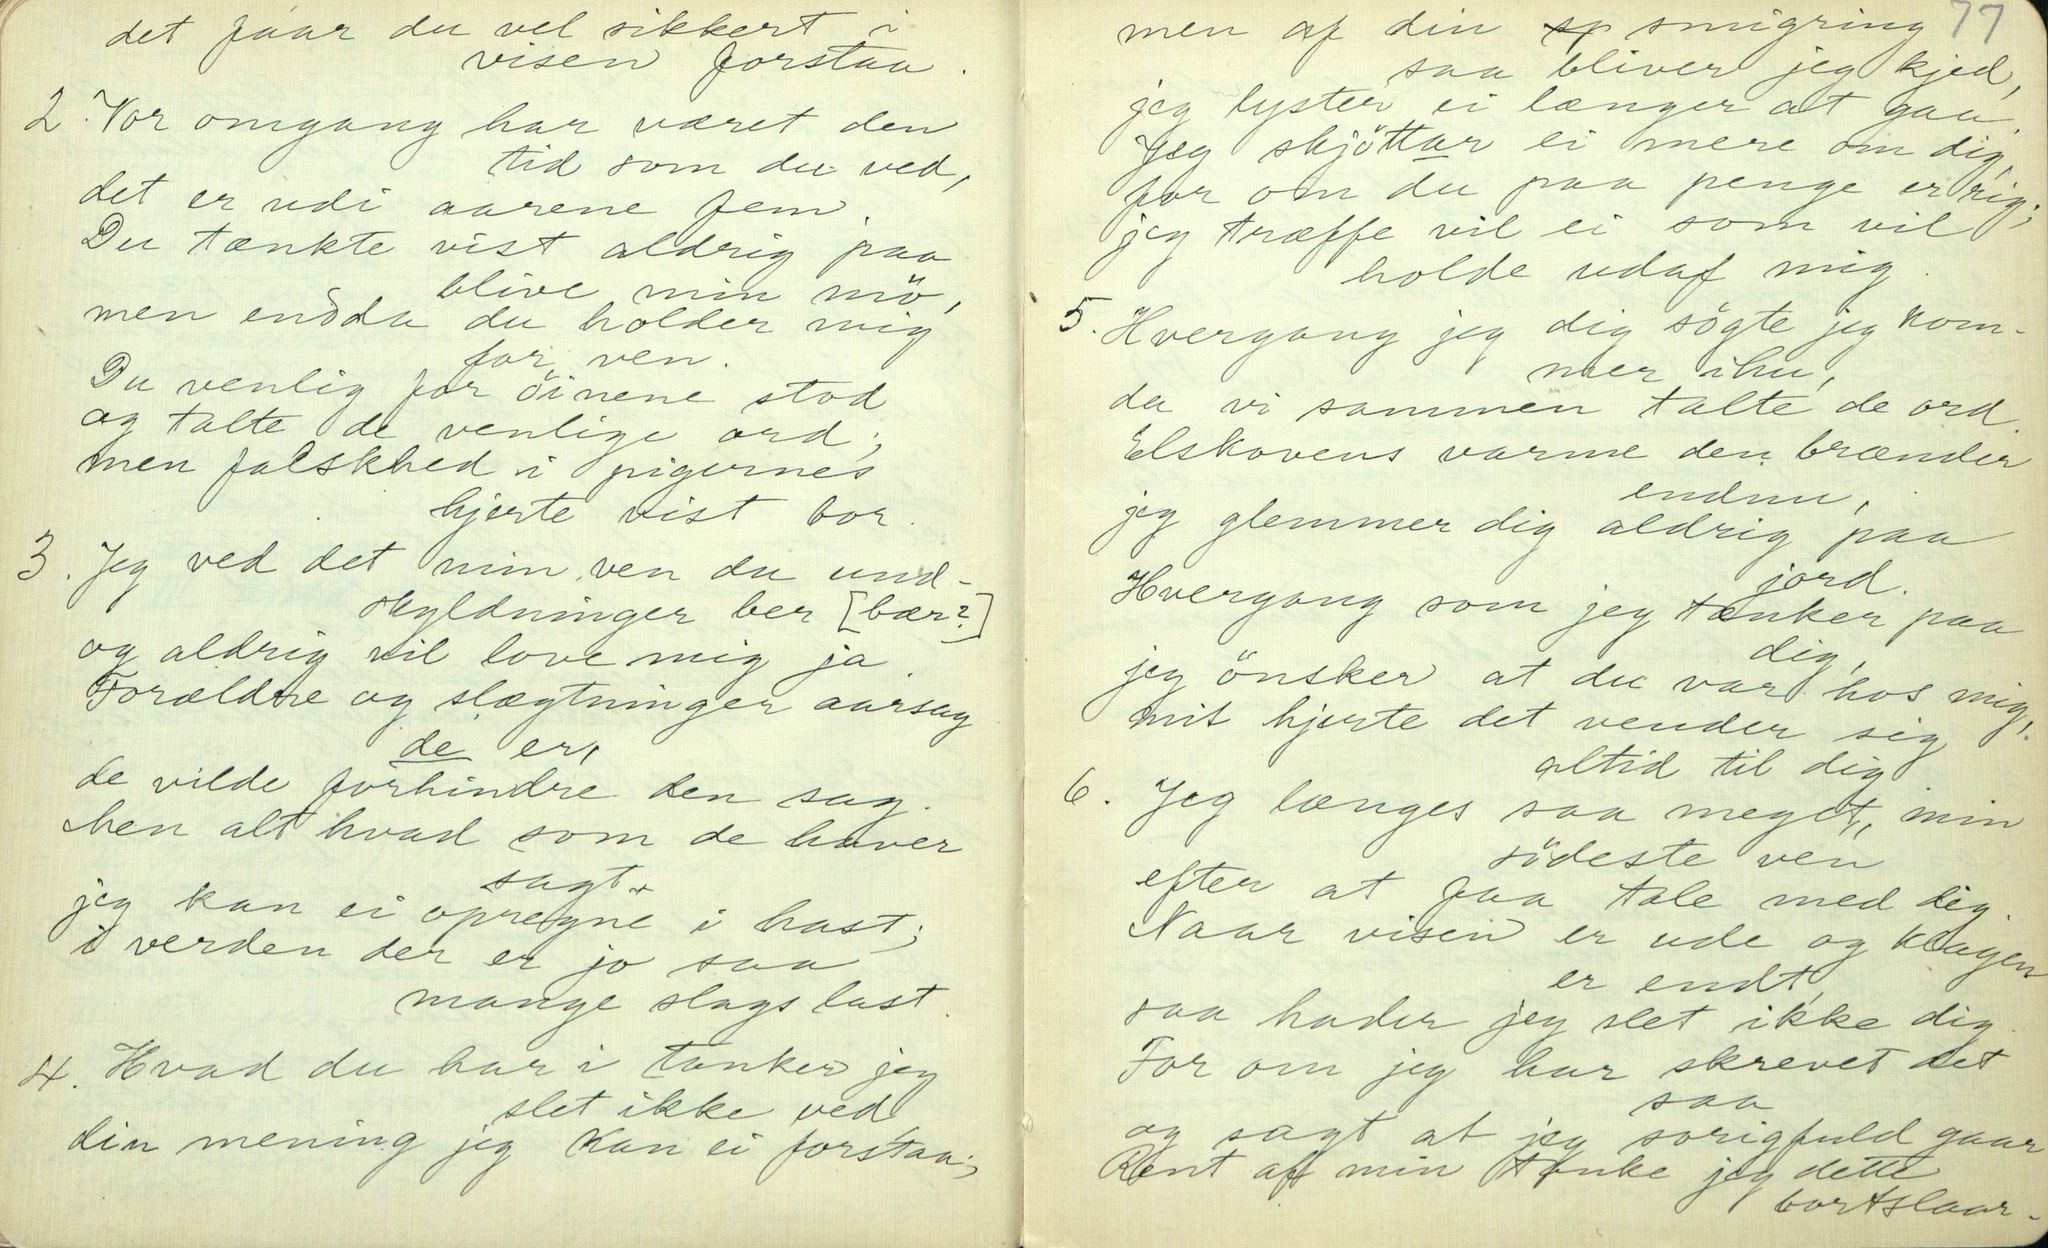 det faar du vel sikkert i
visen forstaa.
2. Vor omgang har været den
tid som du ved,
det er udi aarene fem.
Du tænkte vist aldrig paa
blive min mö,
men endda du holder mig
for ven.
Du venlig for öinene stod
og talte de venlige ord;
men falskhed i pigernes
hjerte vist bor.
3. Jeg ved det min ven du und-
skyldninger ber [bær?]
og aldrig vil love mig ja
Forældre og slægtninger aarsag
de er,
de vilde forhindre den sag.
Men alt hvad som de haver
sagt.
jeg kan ei opregne i hast;
i verden der er jo saa
mange slags last.
4. Hvad du har i tanker jeg
slet ikke ved
din mening jeg kan ei forstaa;
77
men af din sp smigring
saa bliver jeg kjed,
jeg lyster ei længer at gaa.
Jeg skjöttar ei mere om dig,
for om du paa penge er rig;
jeg træffe vil ei som vil
holde udaf mig.
5. Hvergang jeg dig sögte jeg kom-
mer ihu,
da vi sammen talte de ord.
Elskovens varme den brænder
endnu,
jeg glemmer dig aldrig paa
jord.
Hvergang som jeg tænker paa
dig,
jeg önsker at du var hos mig,
mit hjerte det vender sig
altid til dig
6. Jeg længes saa meget, min
södeste ven
efter at faa tale med dig.
Naar visen er ude og klagen
er endt,
saa hader jeg slet ikke dig.
For om jeg har skrevet det
saa
og sagt at jeg sorigfuld gaar
Rent af min tanke jeg dette
bortslaar.